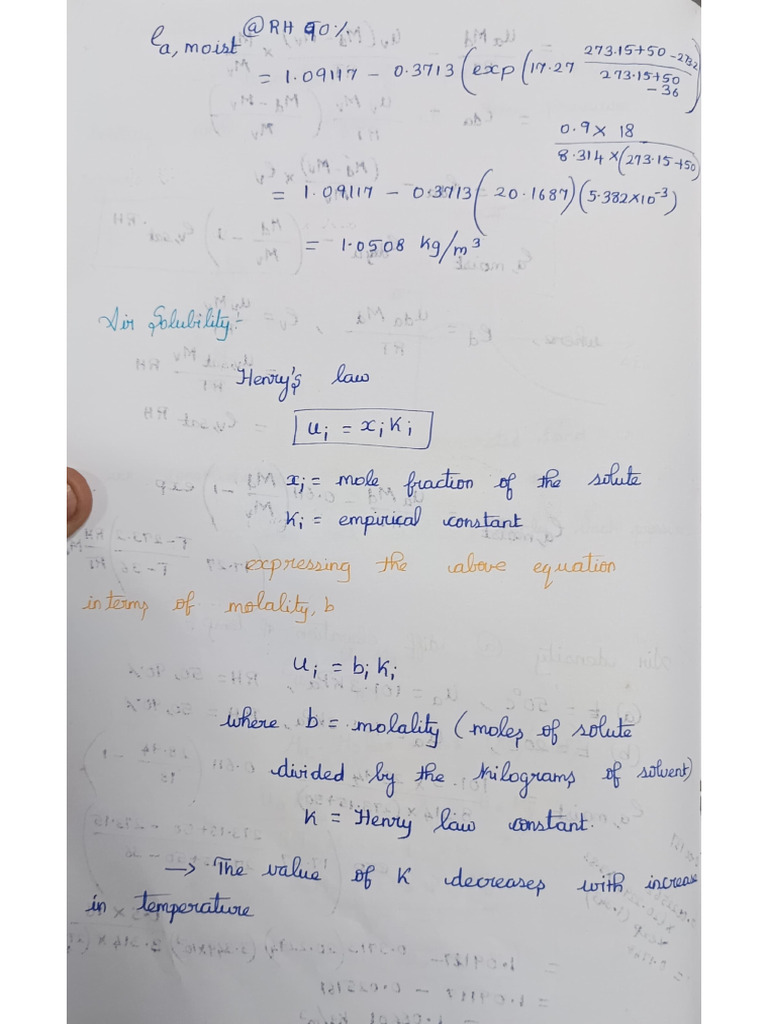 ρa, moist @ RH 90%
= 1.09117 - 0.3713 (exp (17.27 (273.15+50 - 273.2)/(273.15+50 - 36)))
(0.9 × 18)/(8.314 × (273.15+50))
= 1.09117 - 0.3713 (20.1687) (5.382×10⁻³)
= 1.0508 kg/m³
Air Solubility:-
Henry's law
uᵢ = xᵢ Kᵢ
xᵢ = mole fraction of the solute
Kᵢ = empirical constant
expressing the above equation
in terms of molality, b
uᵢ = bᵢ Kᵢ
where b = molality (moles of solute
divided by the kilograms of solvent)
K = Henry law constant.
→ The value of K decreases with increase
in temperature